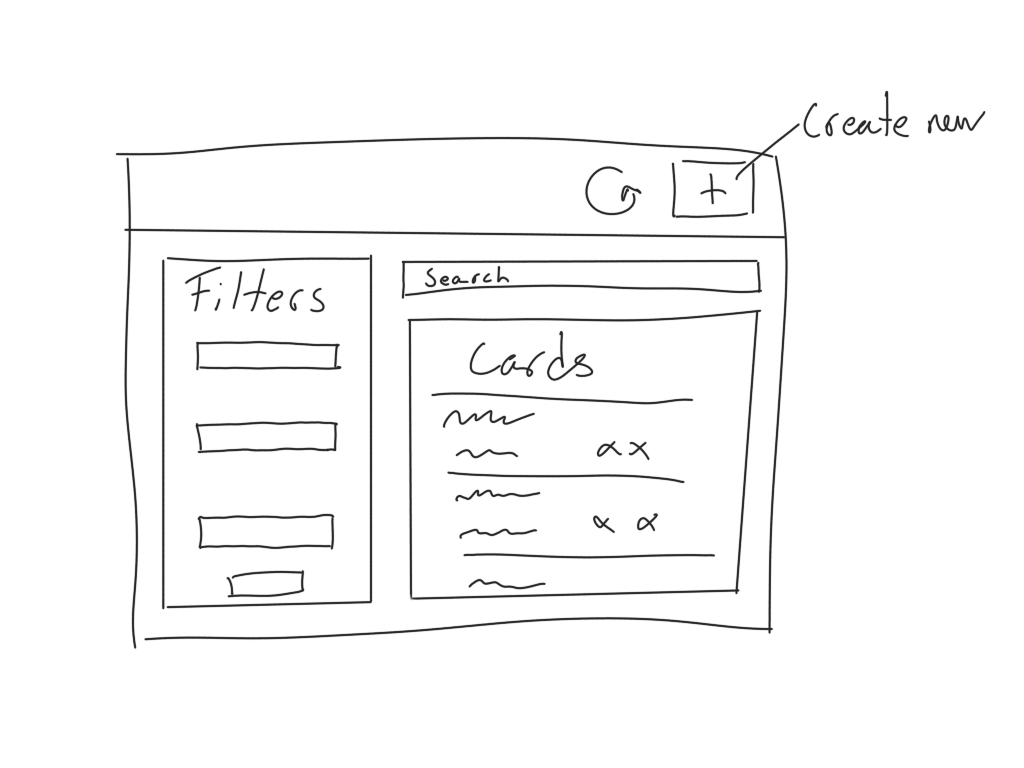 Create new
+
Filters
Search
Cards